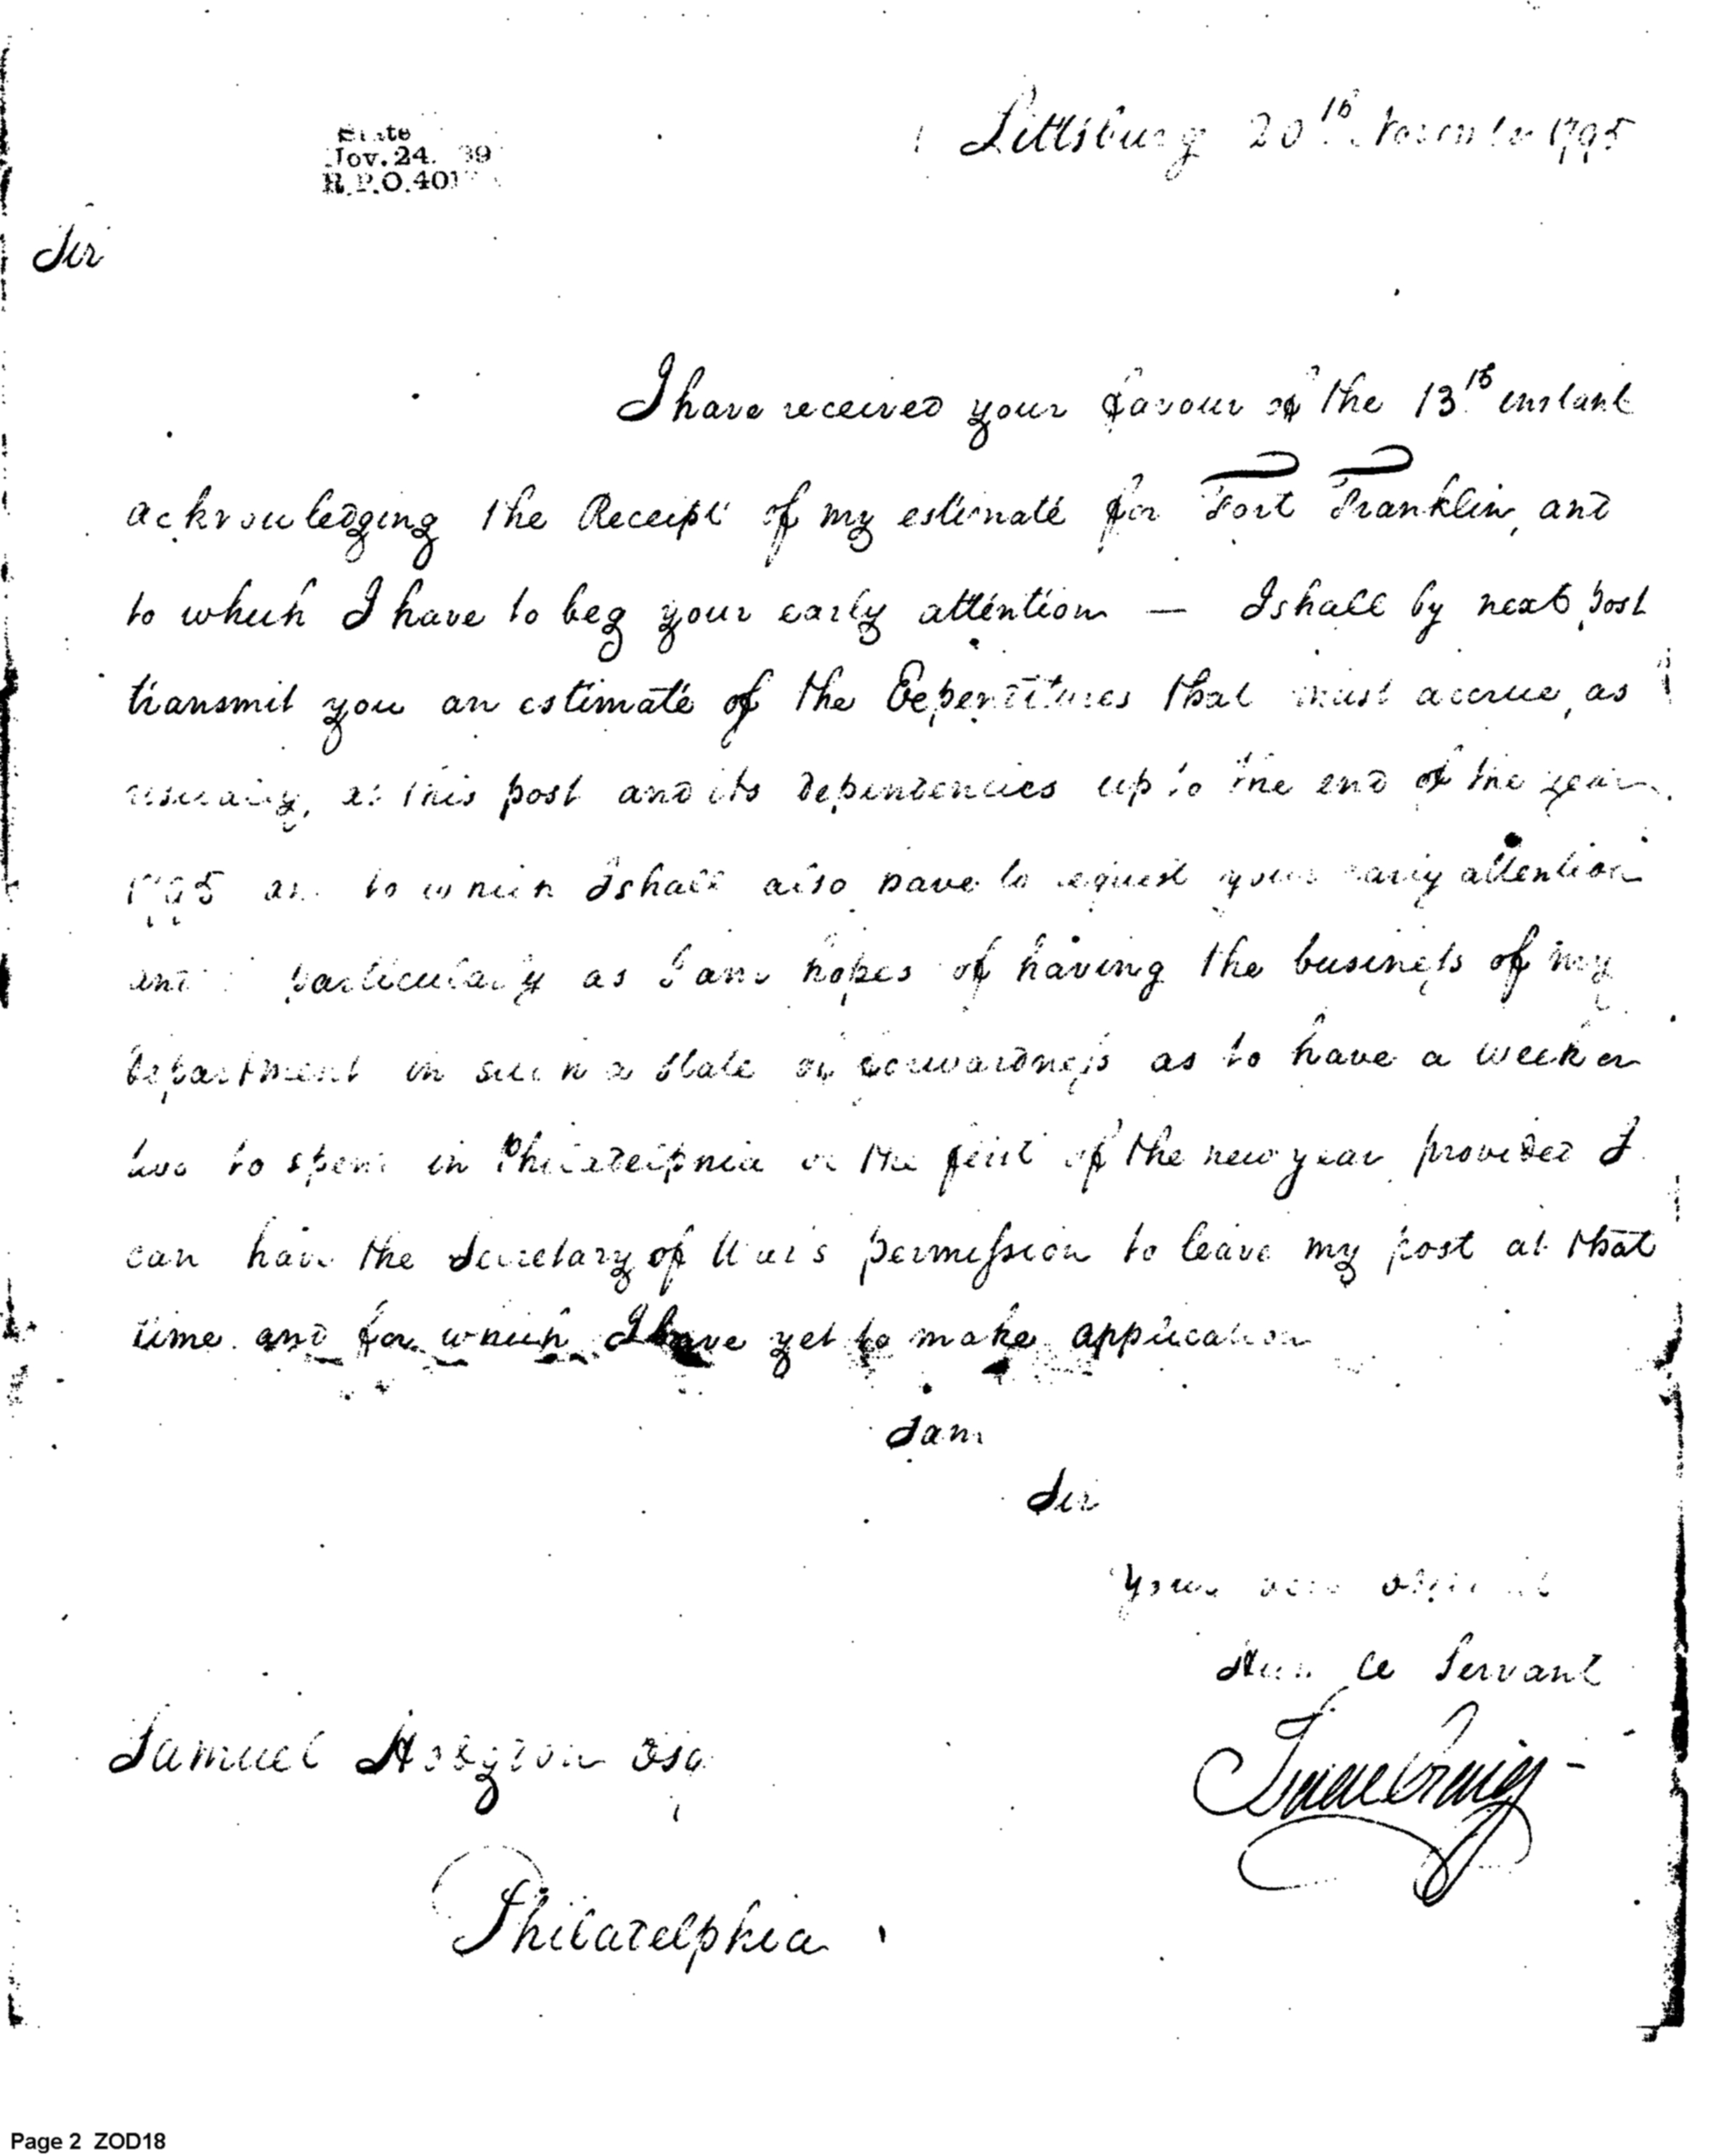 State
Nov. 24.
R.P.O. 401
Pittsburg 20th November 1795
Sir
I have received your favour of the 13th instant
acknowledging the Receipt of my estimate for Fort Franklin, and
to which I have to beg your early attention — I shall by next post
transmit you an estimate of the Expenditures that must accrue, as
usually, at this post and its dependencies up to the end of the year
1795 to which I shall also have to request your early attention
and particularly as I am hopes of having the business of my
department in such a state of forwardness as to have a week or
two to spend in Philadelphia the first of the new year provided I
can have the Secretary of War's permission to leave my post at that
time and for which I have yet to make application
I am
Sir
Your
Servant
Isaac Craig
Samuel Hodgdon Esq
Philadelphia
Page 2 ZOD18